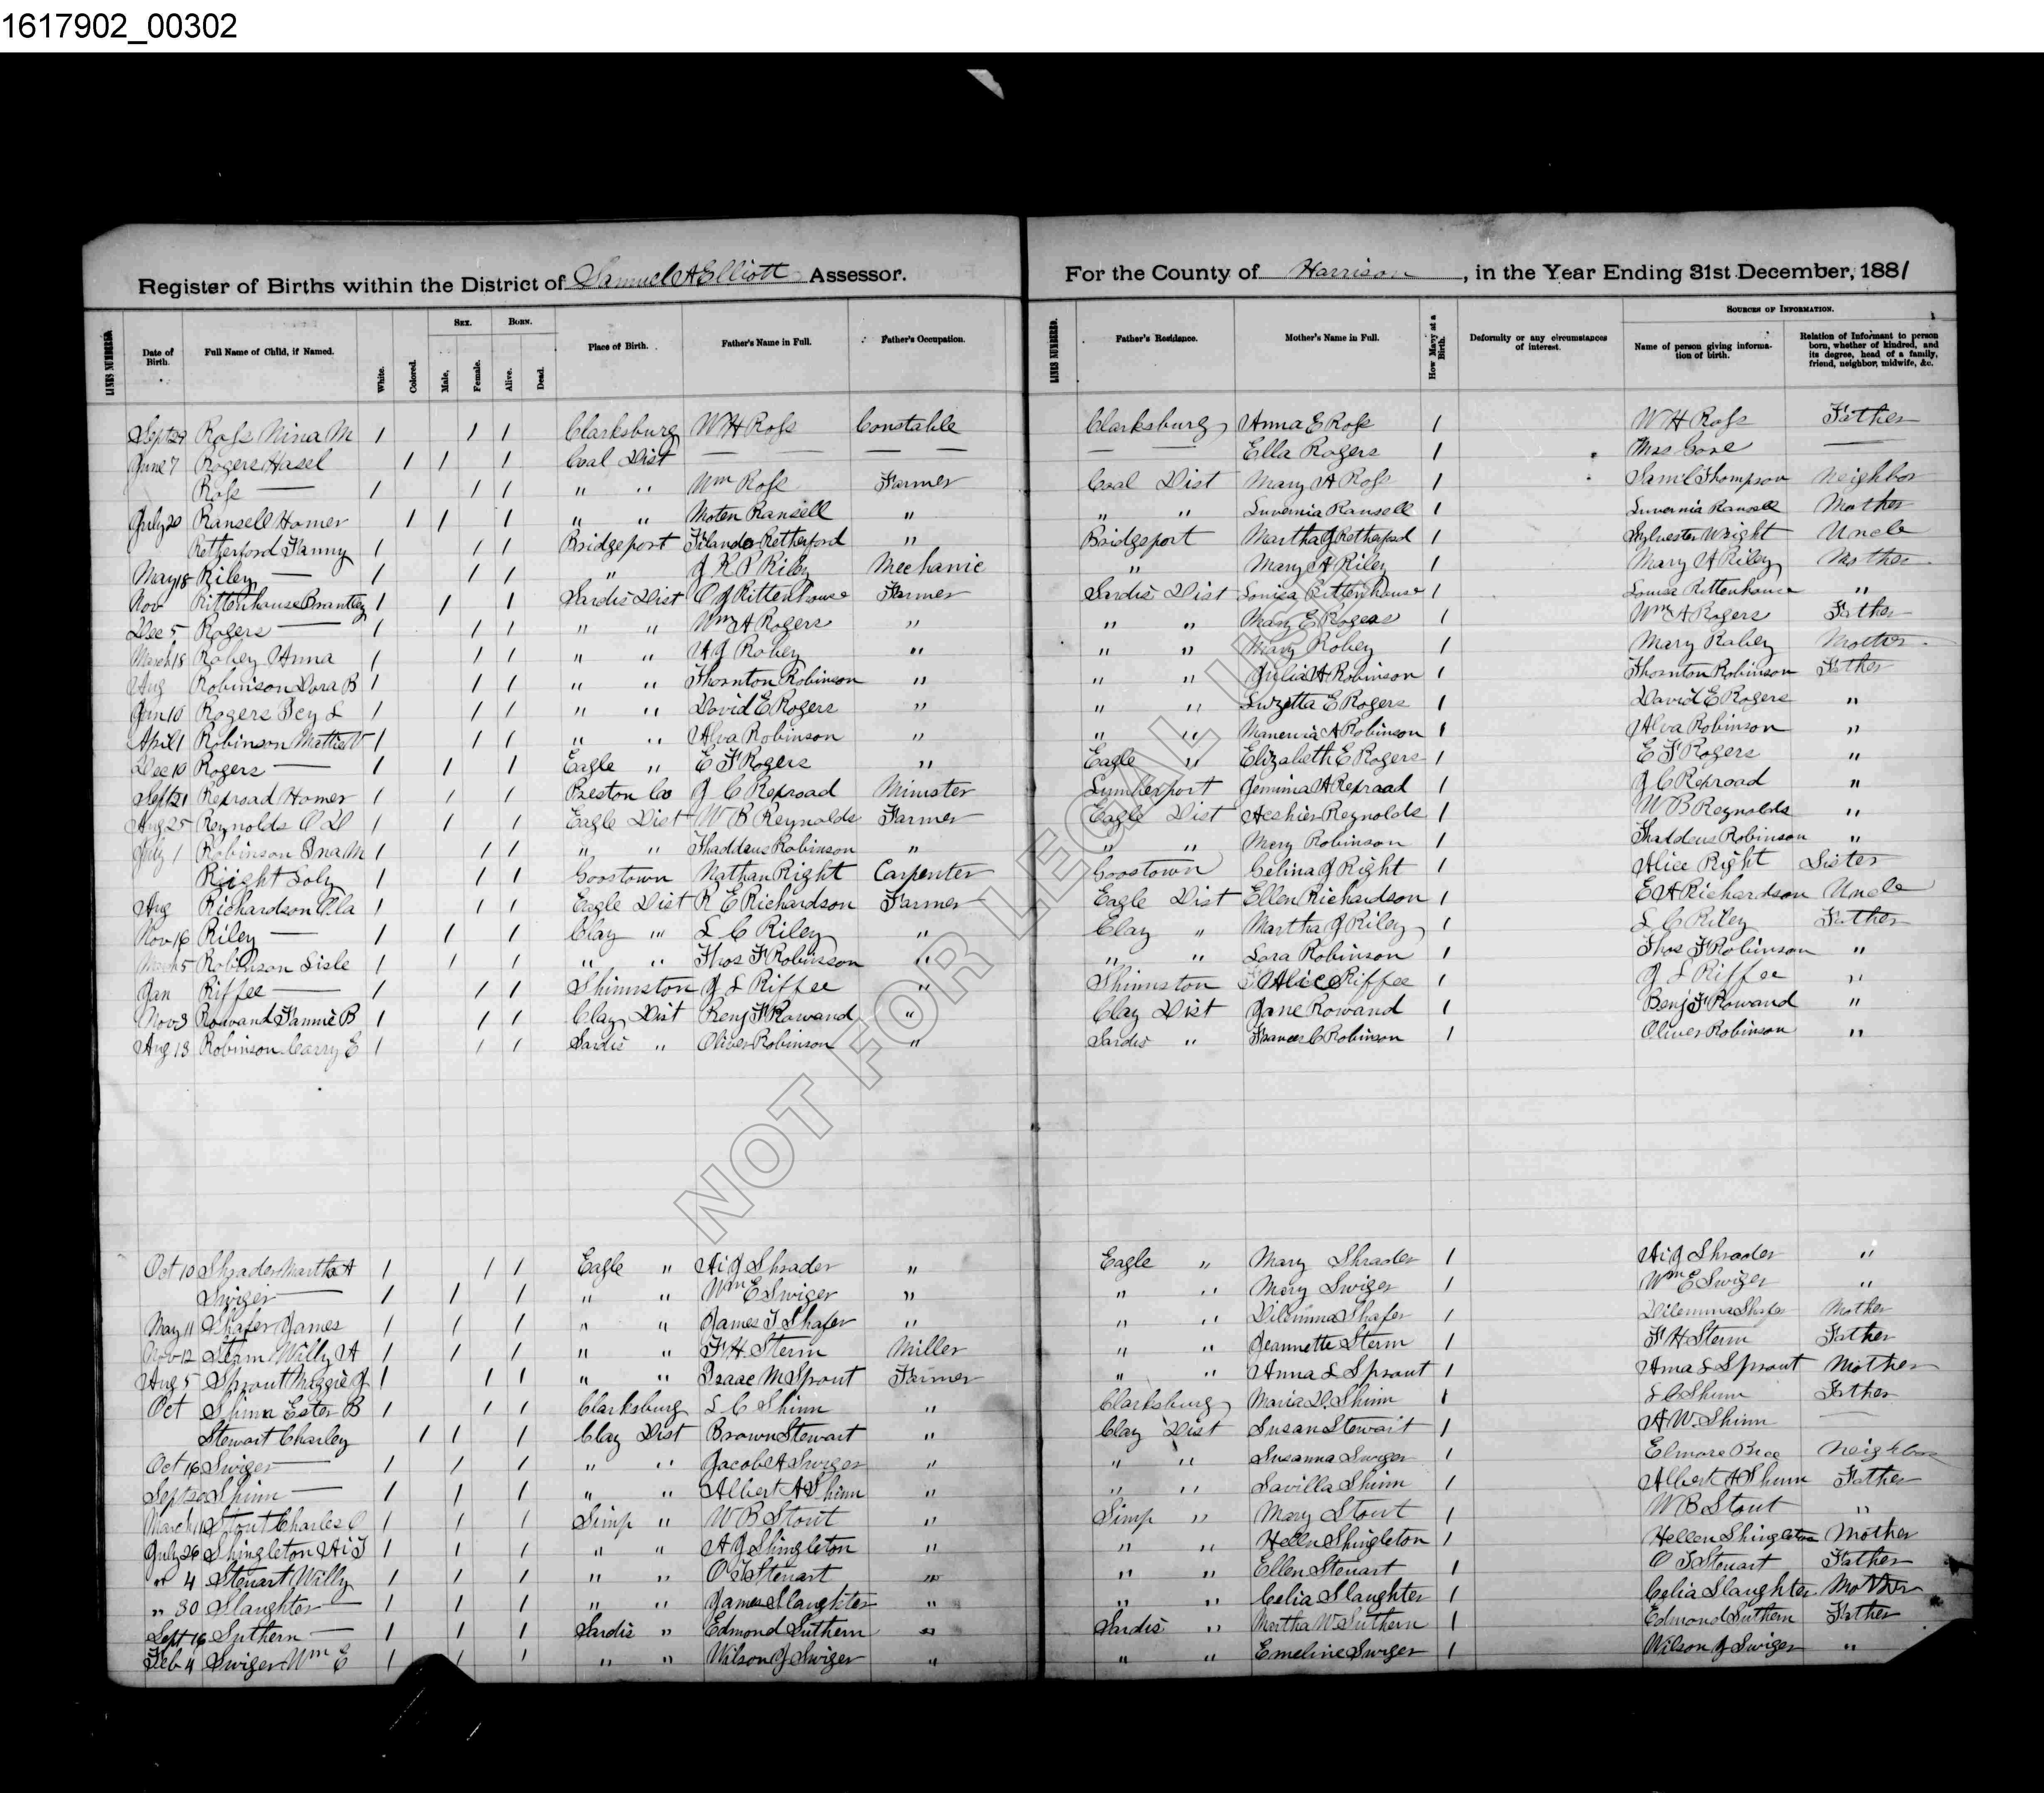 1617902_00302
Register of Births within the District of Samuel A Elliott Assessor. For the County of Harrison, in the Year Ending 31st December, 1881
LINES NUMBERED. Date of Birth. Full Name of Child, if Named. White. Colored. Sex. Male. Female. Born. Alive. Dead. Place of Birth. Father's Name in Full. Father's Occupation. LINES NUMBERED. Father's Residence. Mother's Name in Full. How Many at a Birth. Deformity or any circumstances of interest. Sources of Information. Name of person giving information of birth. Relation of Informant to person born, whether of kindred, and its degree, head of a family, friend, neighbor, midwife, &c.
Sept 29 Ross Nina M 1 1 1 Clarksburg W H Ross Constable Clarksburg Anna E Ross 1 W H Ross Father
June 7 Rogers Hasel 1 1 1 Coal Dist — — — — — — Ella Rogers 1 Mrs Gore —
Ross — 1 1 1 " " Wm Ross Farmer Coal Dist Mary A Ross 1 Saml Thompson Neighbor
July 20 Ransell Homer 1 1 1 " " Moten Ransell " " " Luvernia Ransell 1 Luvernia Ransell Mother
Retherford Fanny 1 1 1 Bridgeport Filando Retherford " Bridgeport Martha J Retherford 1 Sylvester Wright Uncle
May 18 Riley — 1 1 1 " J K P Riley Mechanic " Mary A Riley 1 Mary A Riley Mother
Nov Rittenhouse Brantley 1 1 1 Sardis Dist O J Rittenhouse Farmer Sardis Dist Louisa Rittenhouse 1 Louisa Rittenhouse "
Dec 5 Rogers — 1 1 1 " " Wm A Rogers " " " Mary E Rogers 1 Wm A Rogers Father
March 18 Robey Anna 1 1 1 " " A J Robey " " " Mary Robey 1 Mary Robey Mother
Aug Robinson Dora B 1 1 1 " " Thornton Robinson " " " Julia A Robinson 1 Thornton Robinson Father
Jan 10 Rogers Icy L 1 1 1 " " David E Rogers " " " Luzetta E Rogers 1 David E Rogers "
April 1 Robinson Mattie V 1 1 1 " " Alva Robinson " " " Manervia A Robinson 1 Alva Robinson "
Dec 10 Rogers — 1 1 1 Eagle " E F Rogers " Eagle " Elizabeth E Rogers 1 E F Rogers "
Sept 21 Reproad Homer 1 1 1 Preston Co J C Reproad Minister Lumberport Jemima A Reproad 1 J C Reproad "
Aug 25 Reynolds O D 1 1 1 Eagle Dist W B Reynolds Farmer Eagle Dist Reynolds 1 W B Reynolds "
July 1 Robinson Ina M 1 1 1 " " Thaddeus Robinson " " " Mary Robinson 1 Thaddeus Robinson "
Right Loly 1 1 1 Coostown Nathan Right Carpenter Coostown Celina J Right 1 Alice Right Sister
Aug Richardson Ola 1 1 1 Eagle Dist R E Richardson Farmer Eagle Dist Ellen Richardson 1 E A Richardson Uncle
Nov 16 Riley — 1 1 1 Clay " L C Riley " Clay " Martha J Riley 1 L C Riley Father
March 5 Robinson Lisle 1 1 1 " " Thos F Robinson " " " Lora Robinson 1 Thos F Robinson "
Jan Riffee — 1 1 1 Shinnston J L Riffee " Shinnston Alice Riffee 1 J L Riffee "
Nov 3 Rowand Fannie B 1 1 1 Clay Dist Benj F Rowand " Clay Dist Jane Rowand 1 Benj F Rowand "
Aug 13 Robinson Carry E 1 1 1 Sardis " Oliver Robinson " Sardis " Frances C Robinson 1 Oliver Robinson "
Oct 10 Shrader Martha A 1 1 1 Eagle " Ai J Shrader " Eagle " Mary Shrader 1 Ai J Shrader "
Swiger — 1 1 1 " " Wm E Swiger " " " Mary Swiger 1 Wm E Swiger "
May 11 Shafer James 1 1 1 " " James T Shafer " " " Dilemma Shafer 1 Dilemma Shafer Mother
Nov 12 Sterm Willy A 1 1 1 " " F H Sterm Miller " " Jeannette Sterm 1 F H Sterm Father
Aug 5 Sprout Maggie J 1 1 1 " " Isaac M Sprout Farmer " " Anna L Sprout 1 Anna L Sprout Mother
Oct Shinn Ester B 1 1 1 Clarksburg L C Shinn " Clarksburg Maria D Shinn 1 L C Shinn Father
Stewart Charley 1 1 1 Clay Dist Brown Stewart " Clay Dist Susan Stewart 1 A W Shinn —
Oct 16 Swiger — 1 1 1 " " Jacob A Swiger " " " Susanna Swiger 1 Elmore Bice Neighbor
Sept 20 Shinn — 1 1 1 " " Albert A Shinn " " " Savilla Shinn 1 Albert A Shinn Father
March 11 Stout Charles O 1 1 1 Simp " W B Stout " Simp " Mary Stout 1 W B Stout "
July 26 Shingleton Ai J 1 1 1 " " A J Shingleton " " " Hellen Shingleton 1 Hellen Shingleton Mother
" 4 Steuart Willy 1 1 1 " " O T Steuart " " " Ellen Steuart 1 O T Steuart Father
" 30 Slaughter — 1 1 1 " " James Slaughter " " " Celia Slaughter 1 Celia Slaughter Mother
Sept 16 Suthern — 1 1 1 Sardis " Edmond Suthern " Sardis " Martha W Suthern 1 Edmond Suthern Father
Feb 4 Swiger Wm E 1 1 1 " " Wilson J Swiger " " " Emeline Swiger 1 Wilson J Swiger "
NOT FOR LEGAL USE